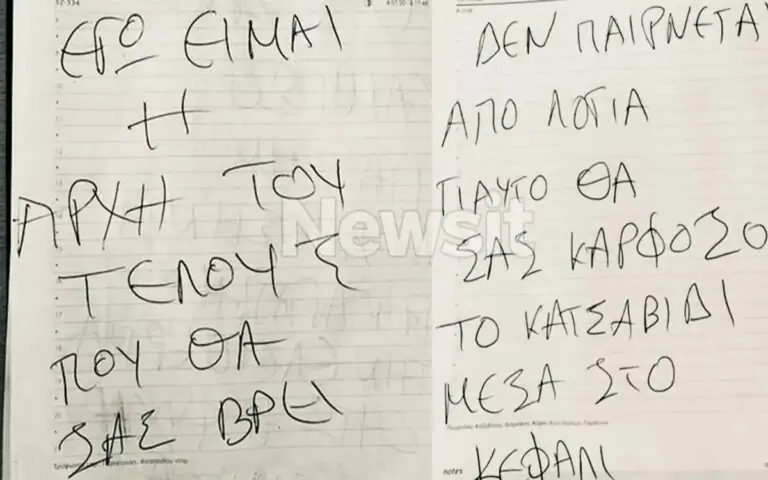 ΕΓΩ ΕΙΜΑΙ
Η
ΑΡΧΗ ΤΟΥ
ΤΕΛΟΥΣ
ΠΟΥ ΘΑ
ΣΑΣ ΒΡΕΙ
ΔΕΝ ΠΑΙΡΝΕΤΑΙ
ΑΠΟ ΛΟΓΙΑ
ΓΙΑΥΤΟ ΘΑ
ΣΑΣ ΚΑΡΦΟΣΟ
ΤΟ ΚΑΤΣΑΒΙΔΙ
ΜΕΣΑ ΣΤΟ
notes ΚΕΦΑΛΙ
Newsit